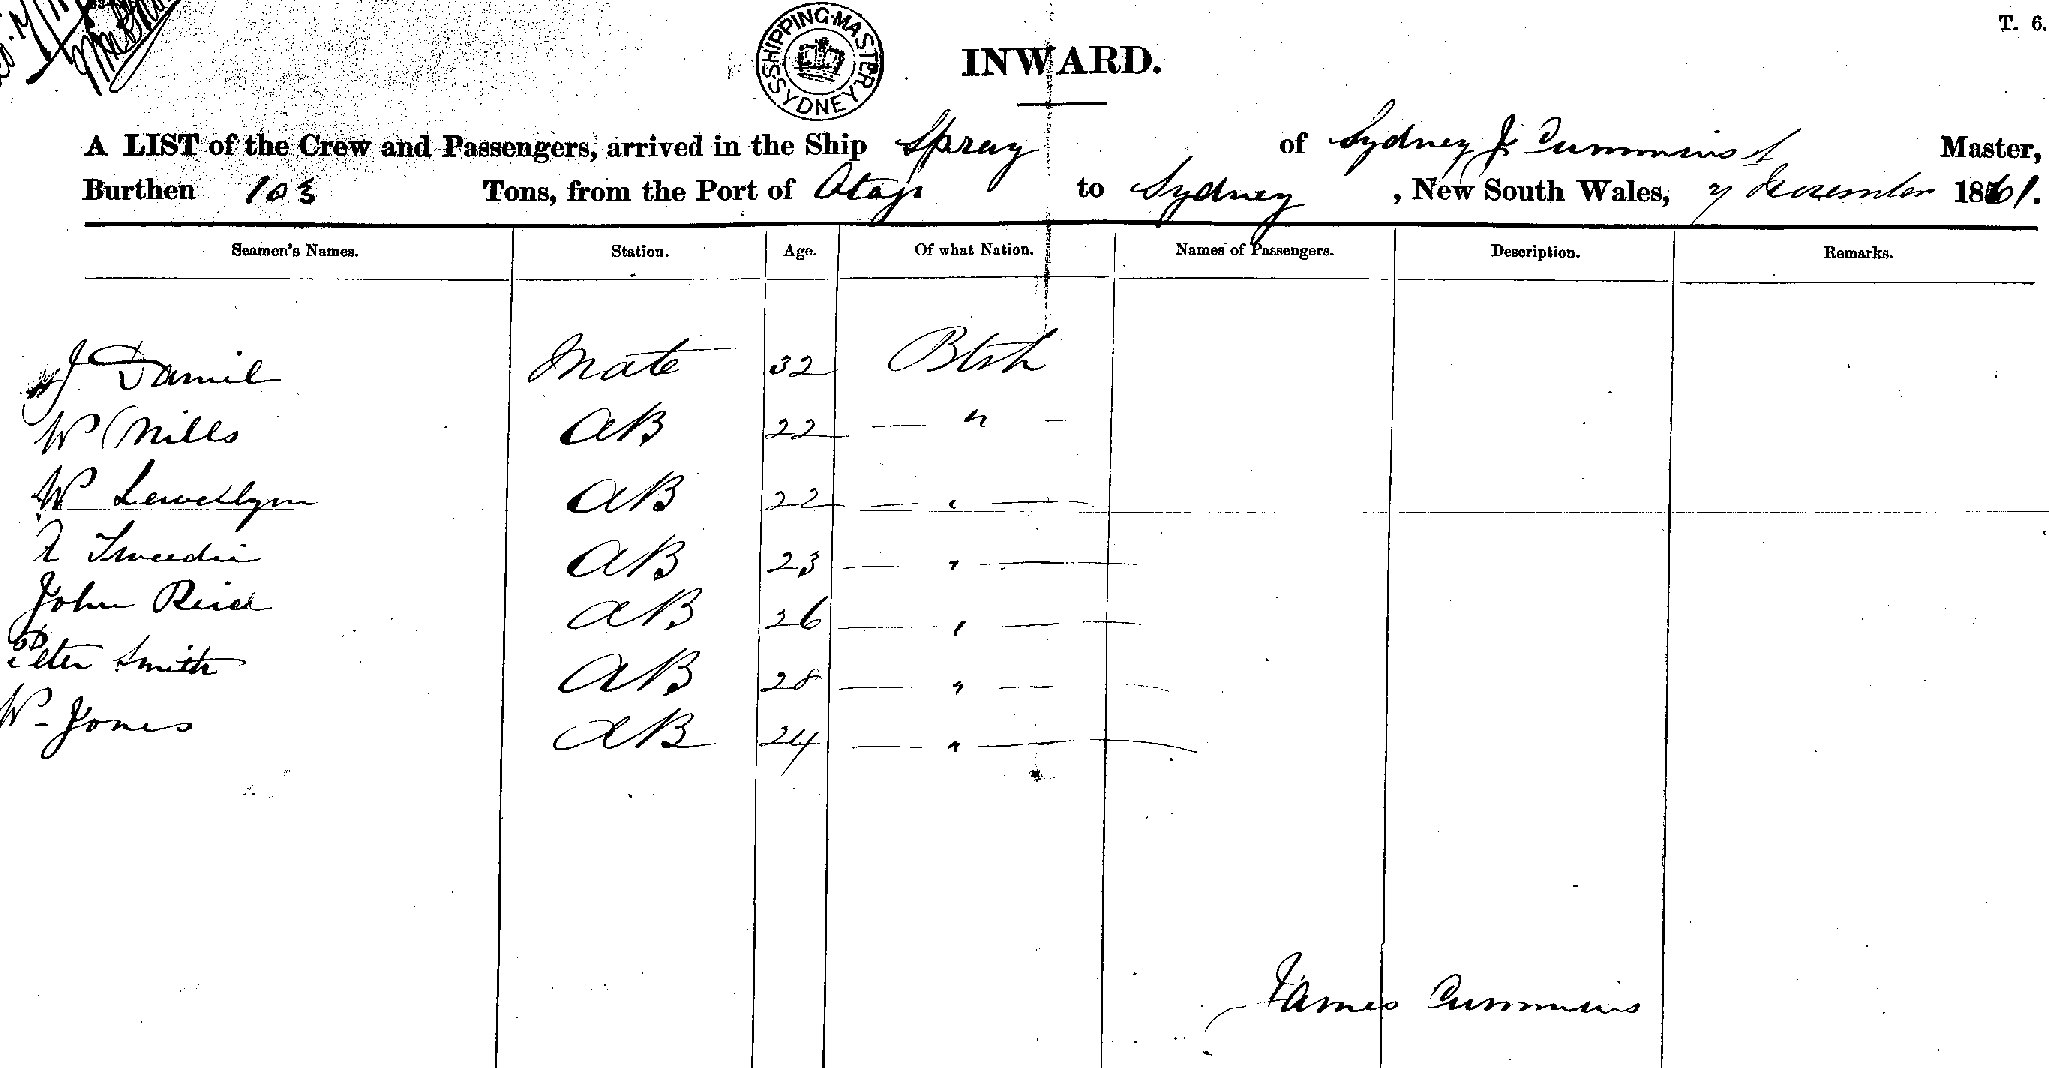 T. 6.
SHIPPING MASTER SYDNEY
INWARD.
A LIST of the Crew and Passengers, arrived in the Ship Spray of Sydney J. Cummins Master,
Burthen 103 Tons, from the Port of Otago to Sydney , New South Wales, 7 December 1861.
Seamen's Names. Station. Age. Of what Nation. Names of Passengers. Description. Remarks.
J Daniel Mate 32 Btsh
W Mills AB 22 — " —
W Lewellyn AB 22 — " —
Tweedie AB 23 — " —
John Reid AB 26 — " —
Peter Smith AB 28 — " —
W- Jones AB 24 — " —
James Cummins